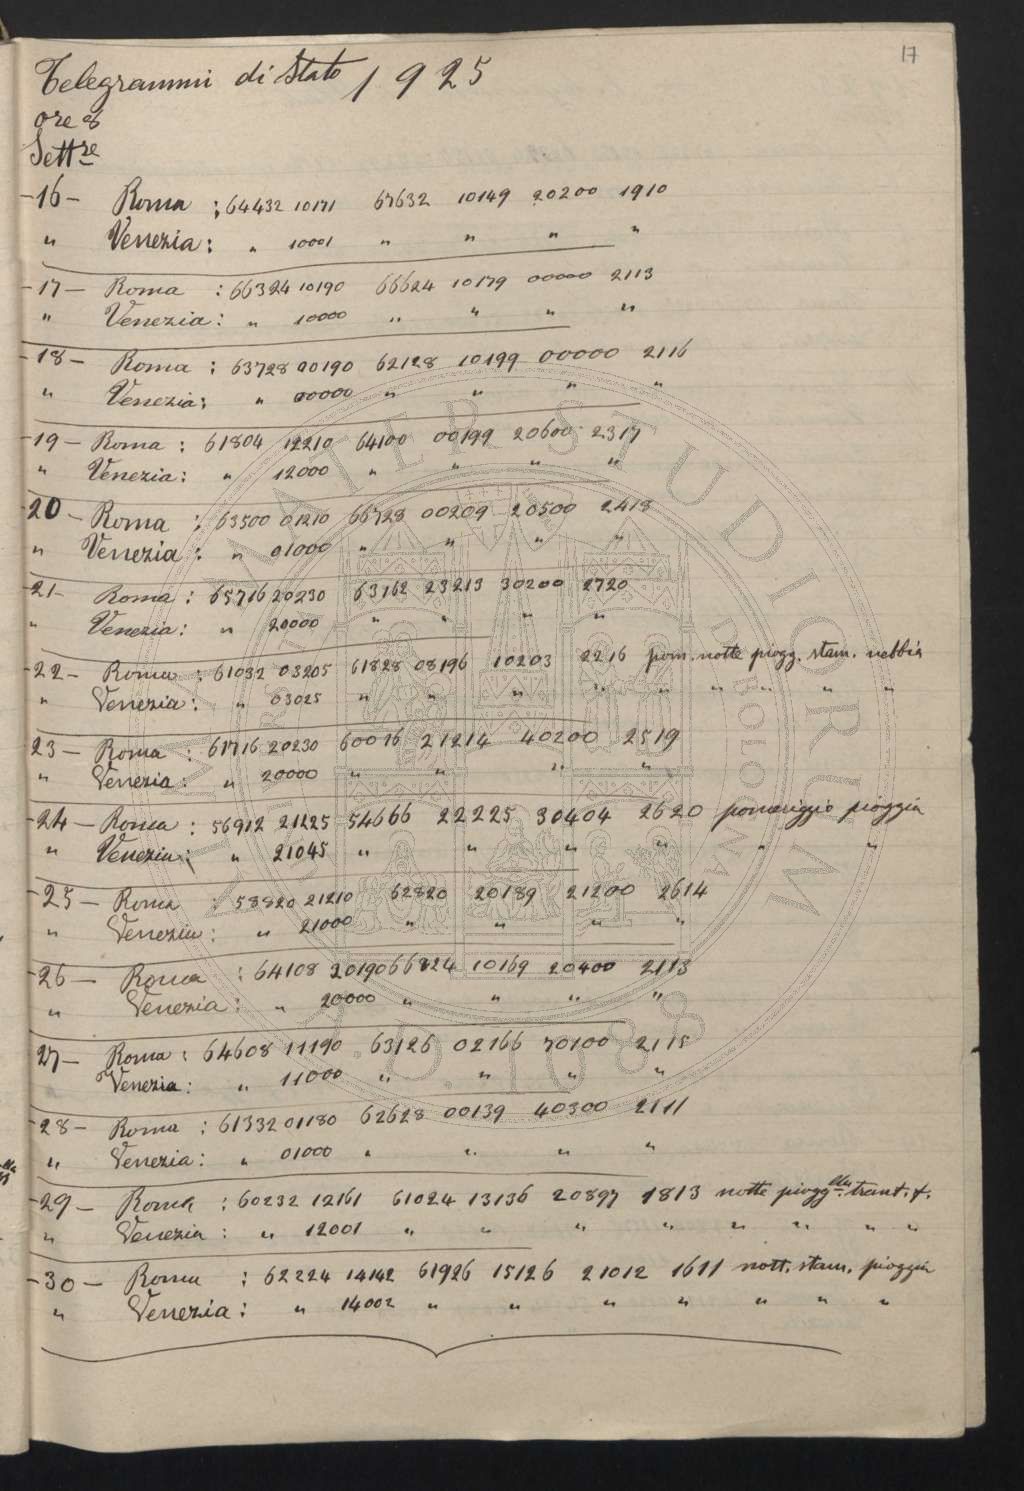 17
Telegrammi di Stato 1925
ore 8
Settre
-16- Roma : 64432 10171 67632 10149 20200 1910
" Venezia : " 10001 " " " "
-17- Roma : 66324 10190 66624 10179 00000 2113
" Venezia : " 10000 " " " "
-18- Roma : 63728 00190 62128 10199 00000 2116
" Venezia : " 00000 " " " "
-19- Roma : 61804 12210 64100 00199 20600 2317
" Venezia : " 12000 " " " "
-20- Roma : 63500 01210 66728 00209 20500 2418
" Venezia : " 01000 " " " "
-21- Roma : 65716 20230 63762 23213 30200 2720
" Venezia : " 20000 " " " "
-22- Roma : 61032 03205 61828 08196 10203 2216 pom. notte piogg. stam. nebbia
" Venezia : " 03025 " " " " " " " " "
-23- Roma : 61716 20230 60016 21214 40200 2519
" Venezia : " 20000 " " " "
-24- Roma : 56912 21225 54666 22225 30404 2620 pomeriggio pioggia
" Venezia : " 21045 " " " " " "
-25- Roma : 58820 21210 62820 20189 21200 2614
" Venezia : " 21000 " " " "
-26- Roma : 64108 20190 66824 10169 20400 2113
" Venezia : " 20000 " " " "
-27- Roma : 64608 11190 63126 02166 70100 2115
" Venezia : " 11000 " " " "
-28- Roma : 61332 01180 62628 00139 40300 2111
" Venezia : " 01000 " " " "
-29- Roma : 60232 12161 61024 13136 20897 1813 notte piogglla tram. f.
" Venezia : " 12001 " " " " " " " "
-30- Roma : 62224 14142 61926 15126 21012 1611 nott. stam. pioggia
" Venezia : " 14002 " " " " " " "
ALMA MATER STUDIORUM
A.D. 1088